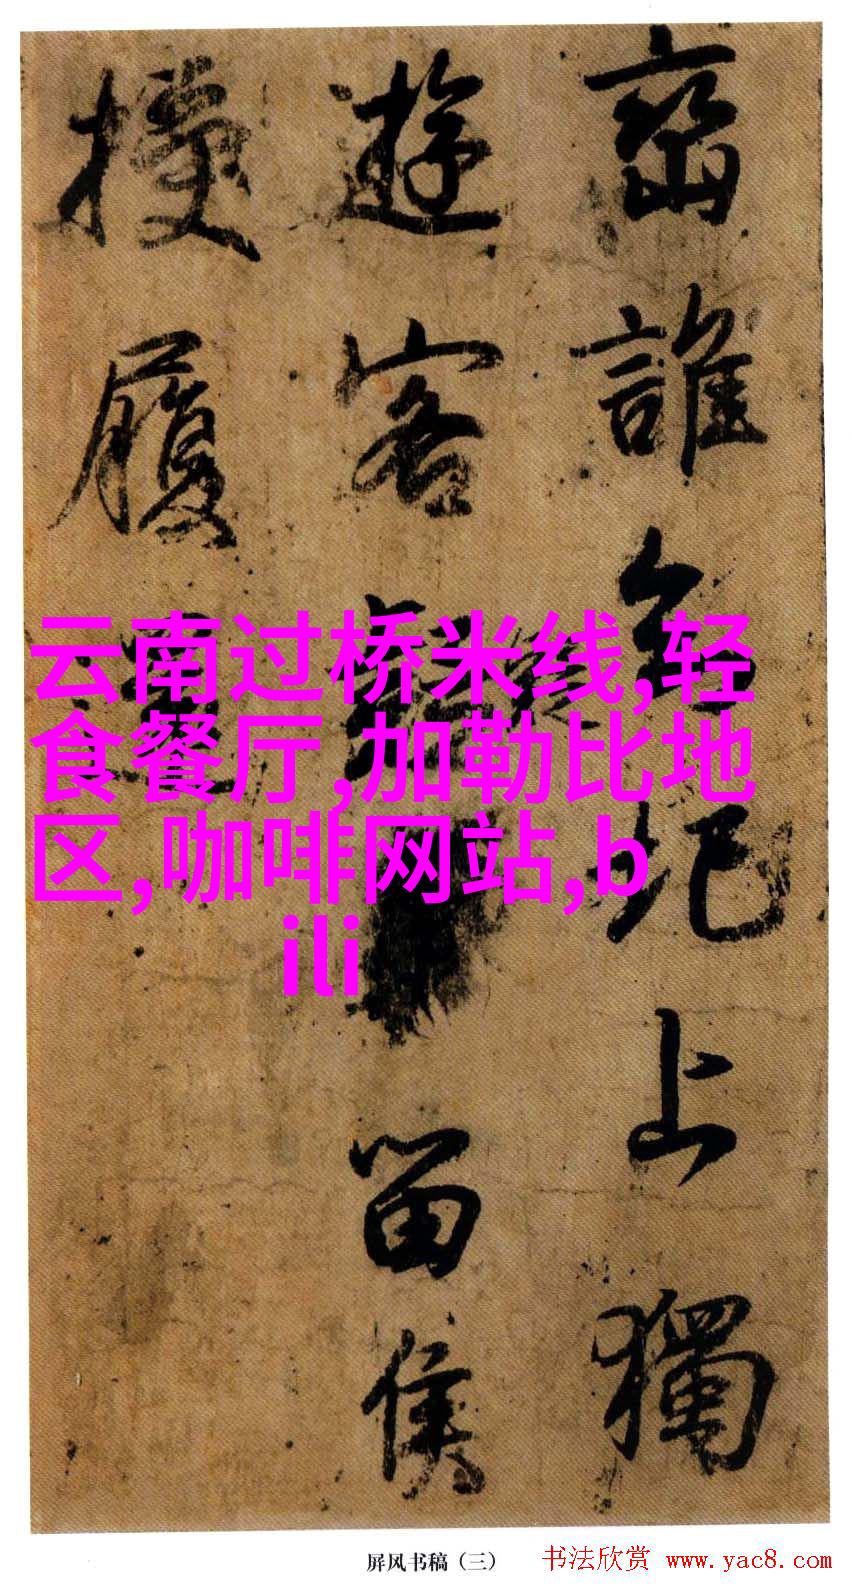 誰圯上獨
遊客留侯
履
云南过桥米线,轻
食餐厅,加勒比地
区,咖啡网站,b
ili
屏风书稿（三）
书法欣赏 www.yac8.com